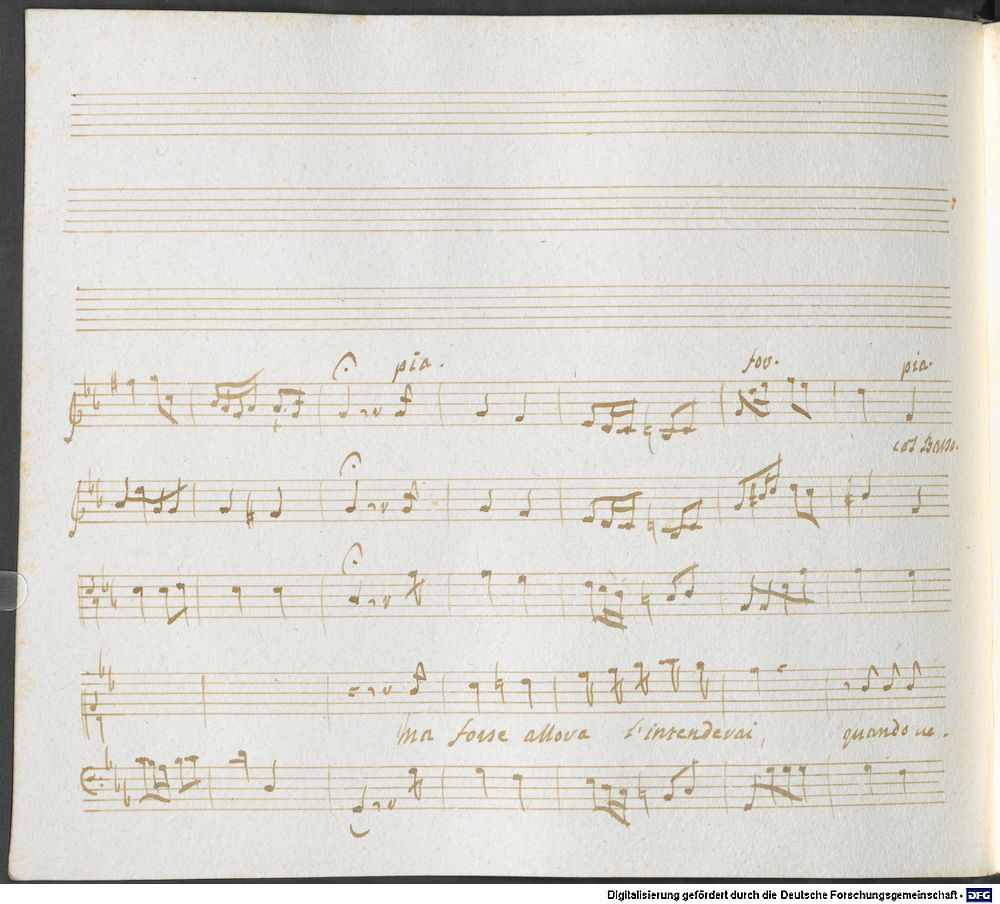 pia.
for.
pia.
col Basso.
ma forse allora l'intenderai,
quando ve-
Digitalisierung gefördert durch die Deutsche Forschungsgemeinschaft - DFG